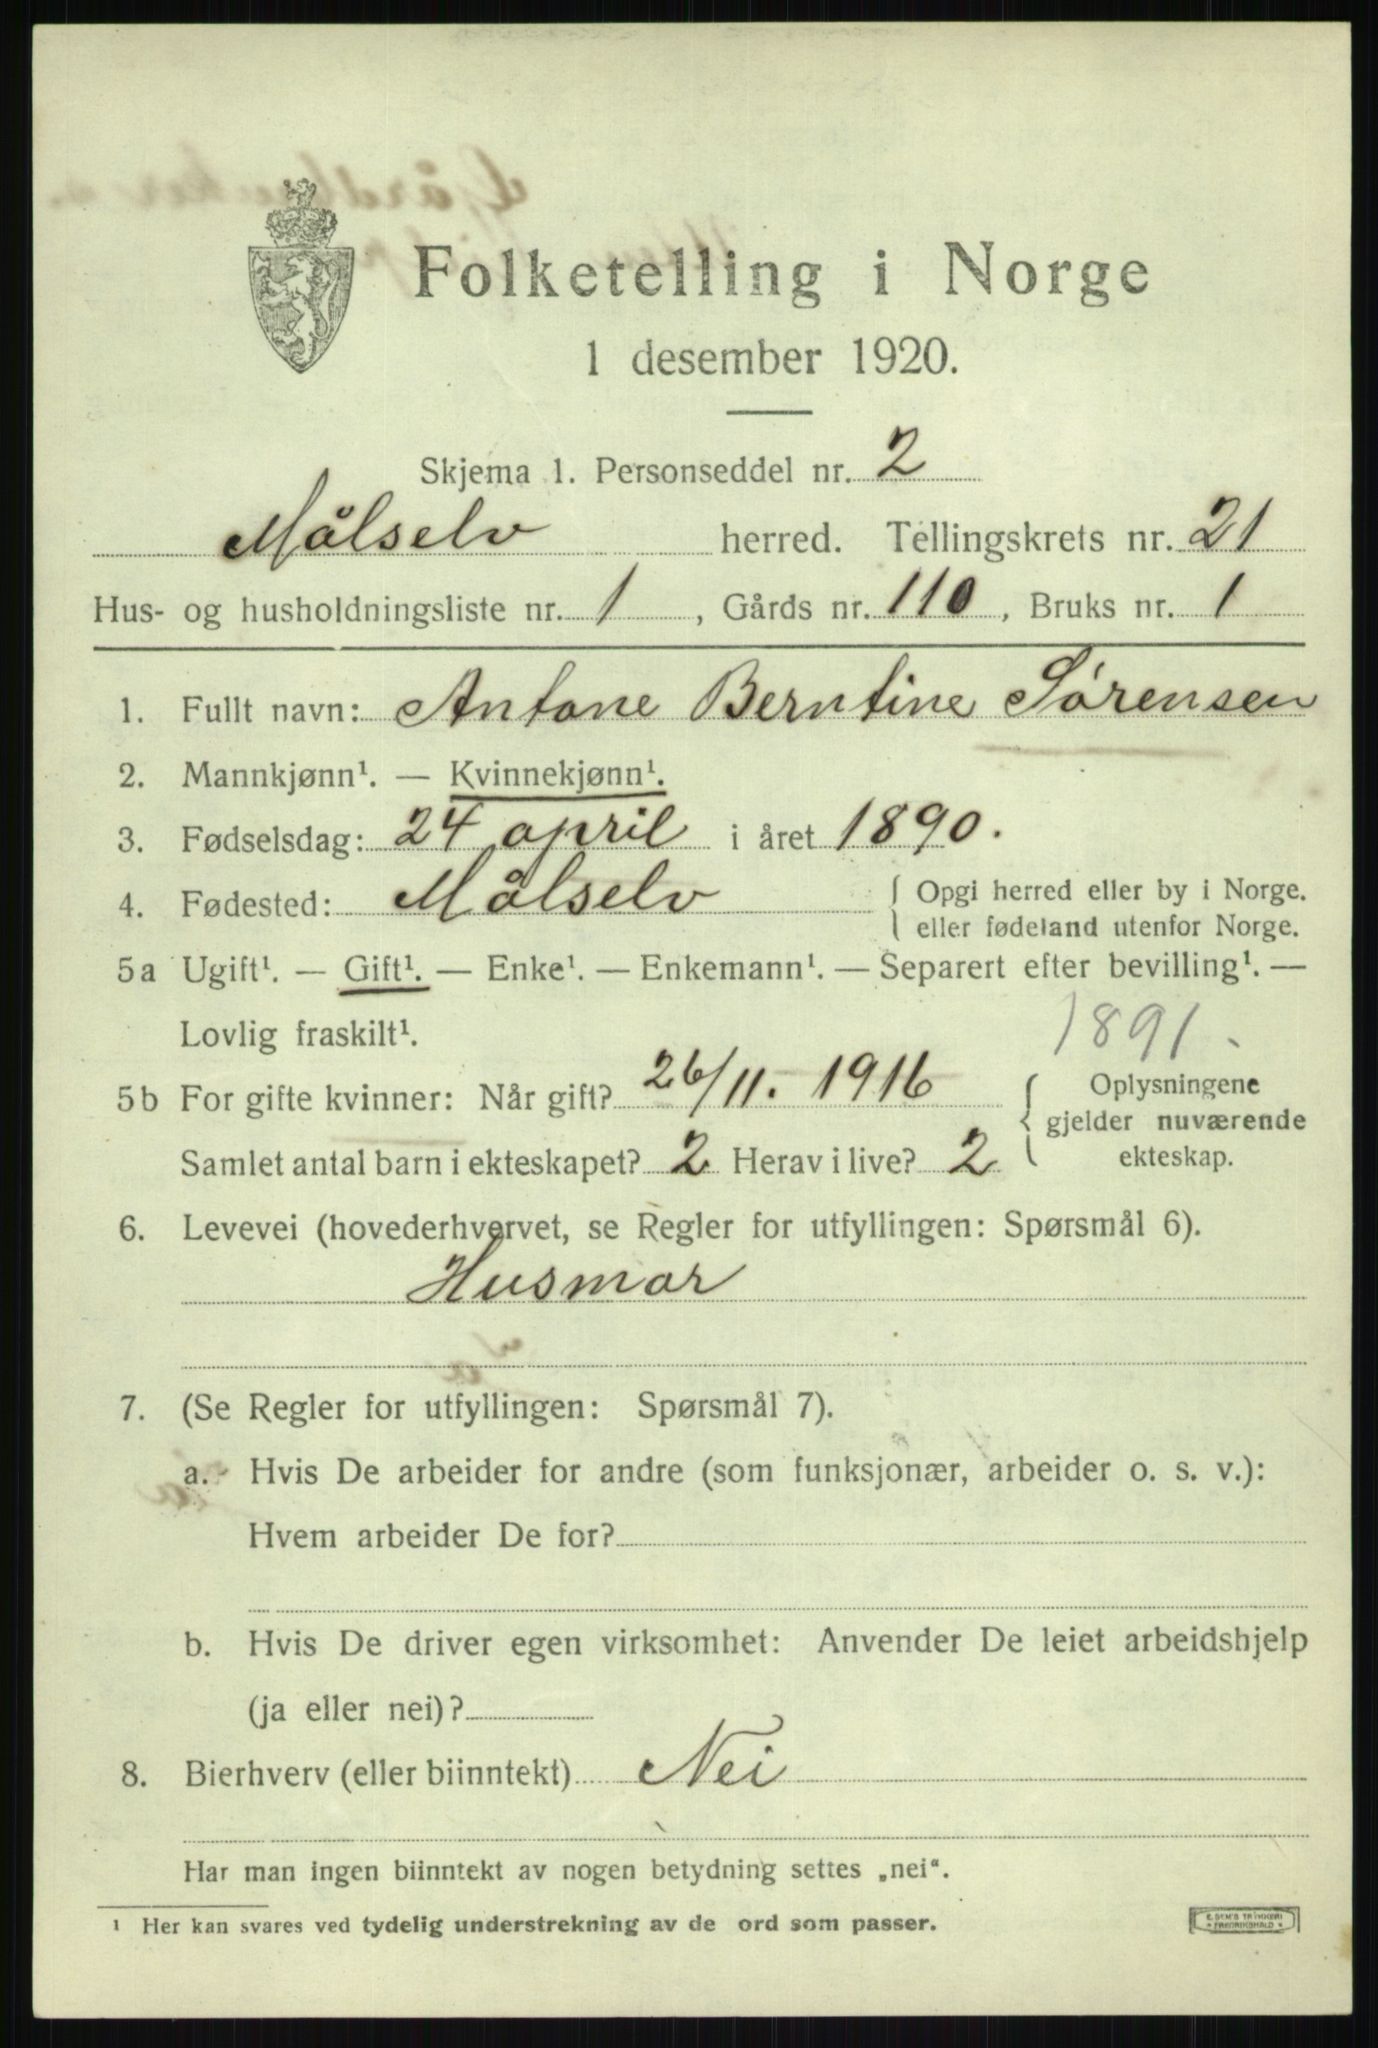 Folketelling i Norge
1 desember 1920.
Skjema 1. Personseddel nr. 2
Målselv herred. Tellingskrets nr. 21
Hus- og husholdningsliste nr. 1, Gårds nr. 110, Bruks nr. 1
1. Fullt navn: Antone Berntine Sørensen
2. Mannkjønn¹. — Kvinnekjønn¹.
3. Fødselsdag: 24 april i året 1890.
4. Fødested: Målselv { Opgi herred eller by i Norge.
eller fødeland utenfor Norge.
5a Ugift¹. — Gift¹. — Enke¹. — Enkemann¹. — Separert efter bevilling¹. —
Lovlig fraskilt¹.
1891.
5b For gifte kvinner: Når gift? 26/11. 1916 { Oplysningene
gjelder nuværende
Samlet antal barn i ekteskapet? 2 Herav i live? 2 ekteskap.
6. Levevei (hovederhvervet, se Regler for utfyllingen: Spørsmål 6).
Husmor
7. (Se Regler for utfyllingen: Spørsmål 7).
a. Hvis De arbeider for andre (som funksjonær, arbeider o. s. v.):
Hvem arbeider De for?
b. Hvis De driver egen virksomhet: Anvender De leiet arbeidshjelp
(ja eller nei)?
8. Bierhverv (eller biinntekt) Nei
Har man ingen biinntekt av nogen betydning settes „nei“.
¹ Her kan svares ved tydelig understrekning av de ord som passer.
E. SEM'S TRYKKERI
FREDRIKSHALD